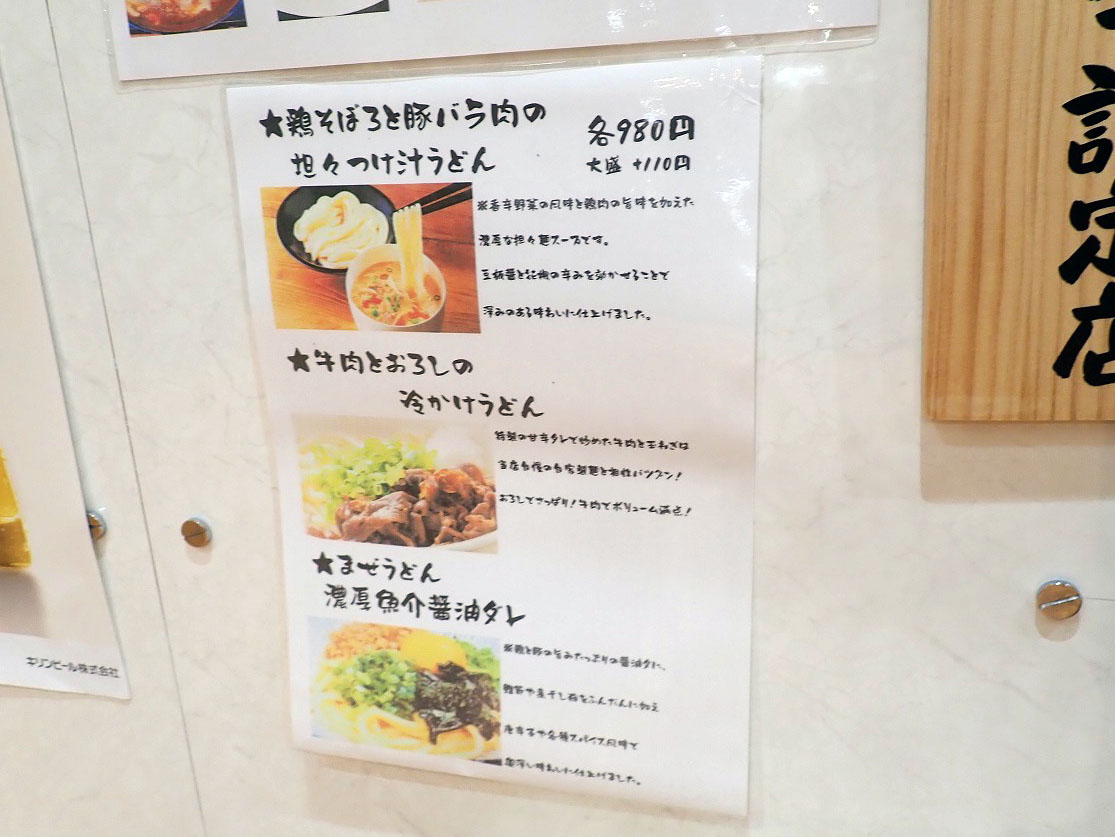 ★鶏そぼろと豚バラ肉の
坦々つけ汁うどん
各980円
大盛 +110円
※香辛野菜の風味と鶏肉の旨味を加えた
濃厚な担々麺スープです。
豆板醤と花椒の辛みを効かせることで
深みのある味わいに仕上げました。
★牛肉とおろしの
冷かけうどん
特製の甘辛タレで炒めた牛肉と玉ねぎは
当店自慢の自家製麺と相性バツグン！
おろしでさっぱり！牛肉でボリューム満点！
★まぜうどん
濃厚魚介醤油ダレ
※鶏と豚の旨みたっぷりの醤油ダレに、
鰹節や煮干し粉をふんだんに加え
唐辛子や各種スパイス風味で
奥深い味わいに仕上げました。
キリンビール株式会社
定店